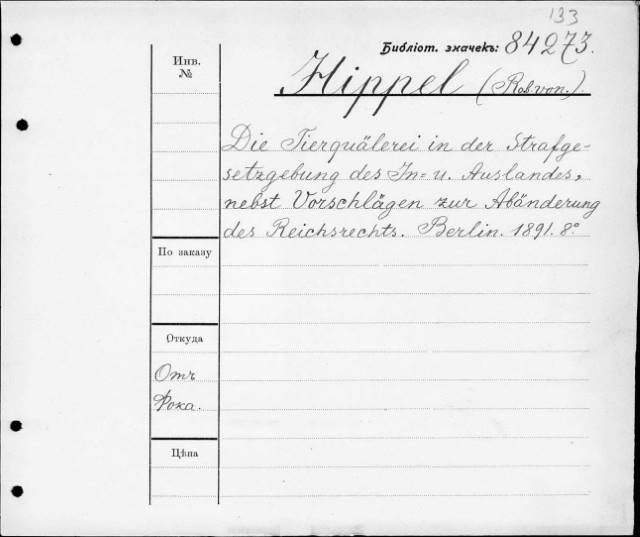 133
Библіот. значекъ: 84273.
Инв.
№
Hippel (Rob. von.)
Die Tierquälerei in der Strafge-
setzgebung des In= u. Auslandes,
nebst Vorschlägen zur Abänderung
des Reichsrechts. Berlin. 1891. 8°
По заказу
Откуда
Отъ
Фока.
Цѣна